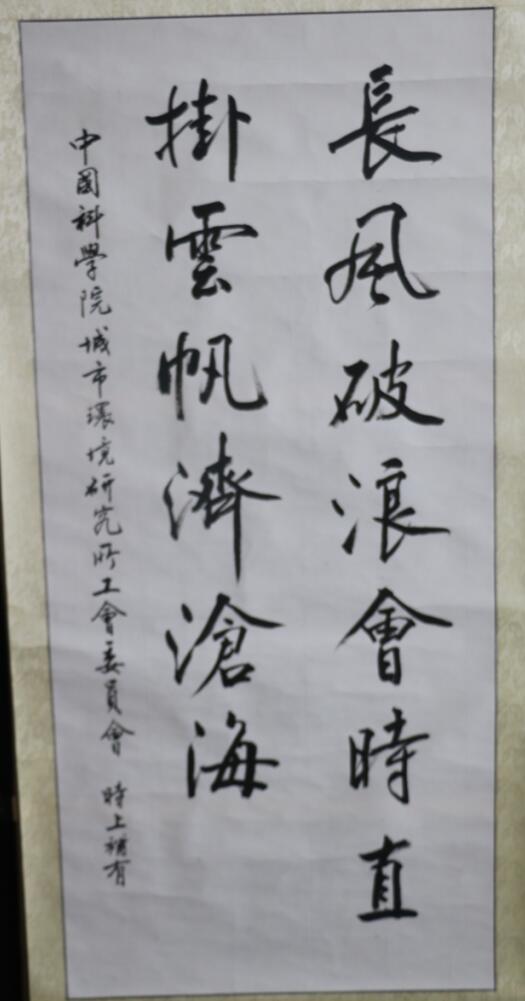 長風破浪會時直
掛雲帆濟滄海
中國科學院城市環境研究所工會委員會 時上有